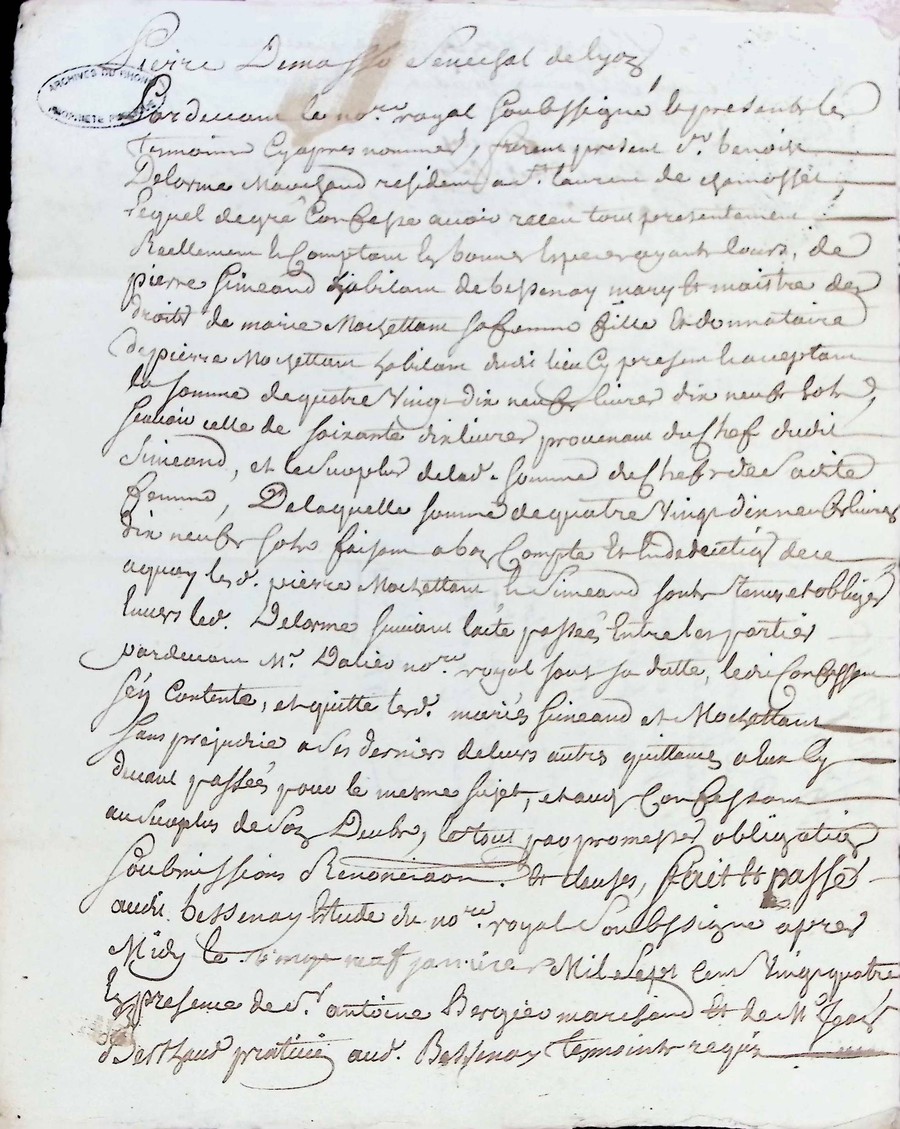 Pierre Demasso Senechal de lyon
ARCHIVES DU RHONE
PROPRIETE PUBLIQUE
Pardevant le no.re royal soubssigné & presents les
temoins cyapres nommés, furent present s.r benoist
Delorme Marchand resident a s.t laurent de chamosset
Lequel de gré Confesse avoir receu tout presentement
Reellement & Comptant en bonnes especes ayants cours, de
pierre Simeand habitant de bessenay mary & maistre des
droits de marie Mochettant sa femme fille et donnataire
de pierre Mochettant habitant dudit lieu cy present & acceptant
la somme de quatre Vingt dix neufs livres dix neufs sols,
scavoir celle de soixante dix livres provenant du Chef dudit
Simeand, et le surplus de lad. somme du Chefs de sadite
femme, De laquelle somme de quatre Vingt dix neufs livres
dix neufs sols faisant a bon Compte et En deduction de ce
a quoy les d. pierre Mochettant & Simeand sonts tenus et obligés
Envers led. Delorme suivant l'acte passée Entre les parties
pardevant M.e Dalier no.re royal sous sa datte, ledit Confessant
s'en contente, et quitte lesd. mariés Simeand et Mochettant
sans prejudice a ses derniers de leurs autres quittances a eux cy
devant passées pour le mesme sujet, et aud. Confessant
au surplus de son Deubs, le tout par promesses obligation
soubmissions Renonciaon. & clauses, fait & passé
audit bessenay Estude du no.re royal soubssigné apres
Midy le vingt neuf janvier Mil sept cent Vingt quatre
En presence de s.r antoine Bergier marchand & de M.e Jean
Berthaud praticien aud. Bessenay temoints requis